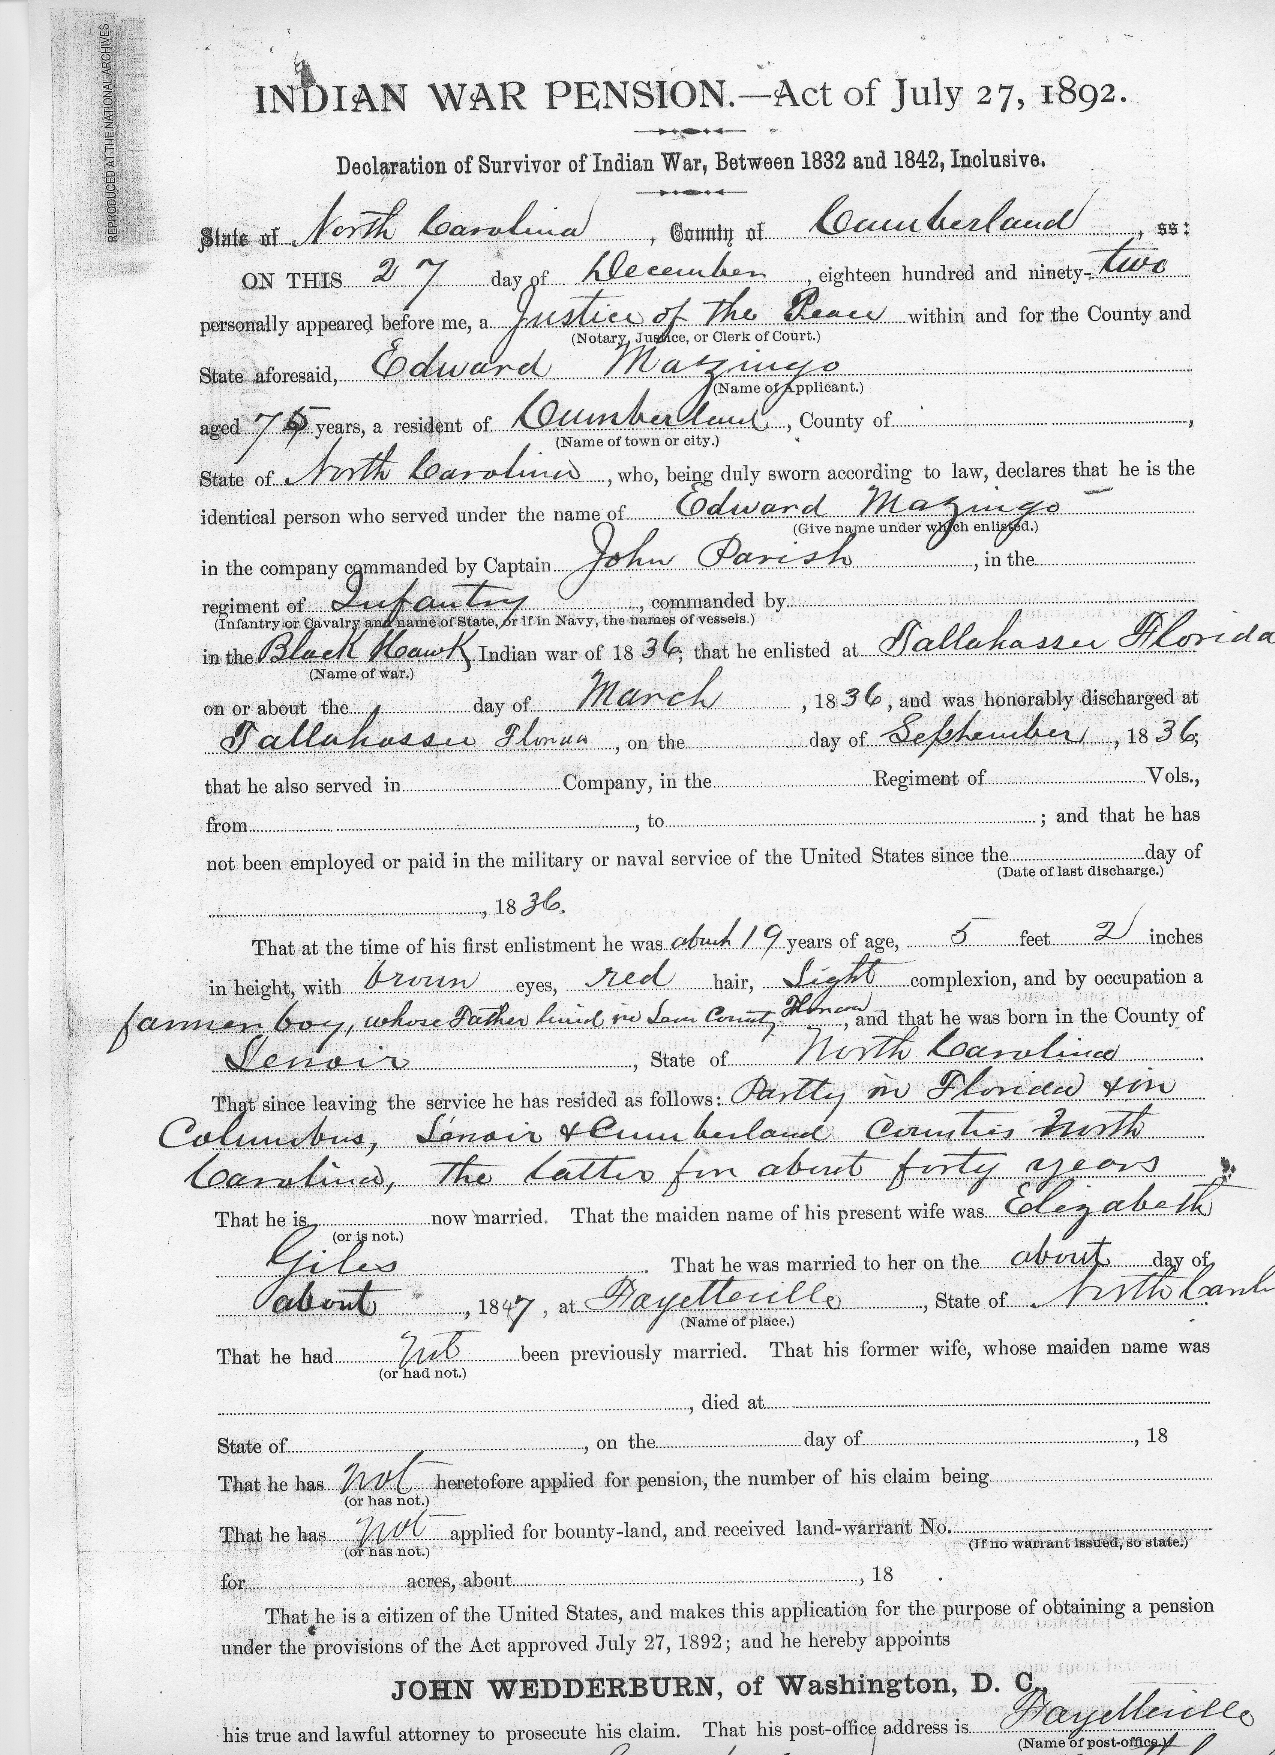 REPRODUCED AT THE NATIONAL ARCHIVES
INDIAN WAR PENSION.—Act of July 27, 1892.
Declaration of Survivor of Indian War, Between 1832 and 1842, Inclusive.
State of North Carolina, County of Cumberland, ss:
ON THIS 27 day of December, eighteen hundred and ninety-two
personally appeared before me, a Justice of the Peace within and for the County and
(Notary, Justice, or Clerk of Court.)
State aforesaid, Edward Mazingo
(Name of Applicant.)
aged 75 years, a resident of Cumberland, County of ,
(Name of town or city.)
State of North Carolina, who, being duly sworn according to law, declares that he is the
identical person who served under the name of Edward Mazingo
(Give name under which enlisted.)
in the company commanded by Captain John Parish, in the
regiment of Infantry, commanded by
(Infantry or Cavalry and name of State, or if in Navy, the names of vessels.)
in the Black Hawk Indian war of 1836, that he enlisted at Tallahassee Florida
(Name of war.)
on or about the day of March, 1836, and was honorably discharged at
Tallahassee Florida, on the day of September, 1836;
that he also served in Company, in the Regiment of Vols.,
from , to ; and that he has
not been employed or paid in the military or naval service of the United States since the day of
(Date of last discharge.)
, 1836.
That at the time of his first enlistment he was about 19 years of age, 5 feet 2 inches
in height, with brown eyes, red hair, Light complexion, and by occupation a
farmer boy, whose Father lived in Leon County Florida, and that he was born in the County of
Lenoir, State of North Carolina
That since leaving the service he has resided as follows: Partly in Florida & in
Columbus, Lenoir & Cumberland Counties North
Carolina, the latter for about forty years
That he is now married. That the maiden name of his present wife was Elizabeth
(or is not.)
Giles. That he was married to her on the about day of
about, 1847, at Fayetteville, State of North Carolina
(Name of place.)
That he had not been previously married. That his former wife, whose maiden name was
(or had not.)
, died at
State of , on the day of , 18
That he has not heretofore applied for pension, the number of his claim being
(or has not.)
That he has not applied for bounty-land, and received land-warrant No.
(or has not.) (If no warrant issued, so state.)
for acres, about , 18 .
That he is a citizen of the United States, and makes this application for the purpose of obtaining a pension
under the provisions of the Act approved July 27, 1892; and he hereby appoints
JOHN WEDDERBURN, of Washington, D. C.,
his true and lawful attorney to prosecute his claim. That his post-office address is Fayetteville
(Name of post-office.)